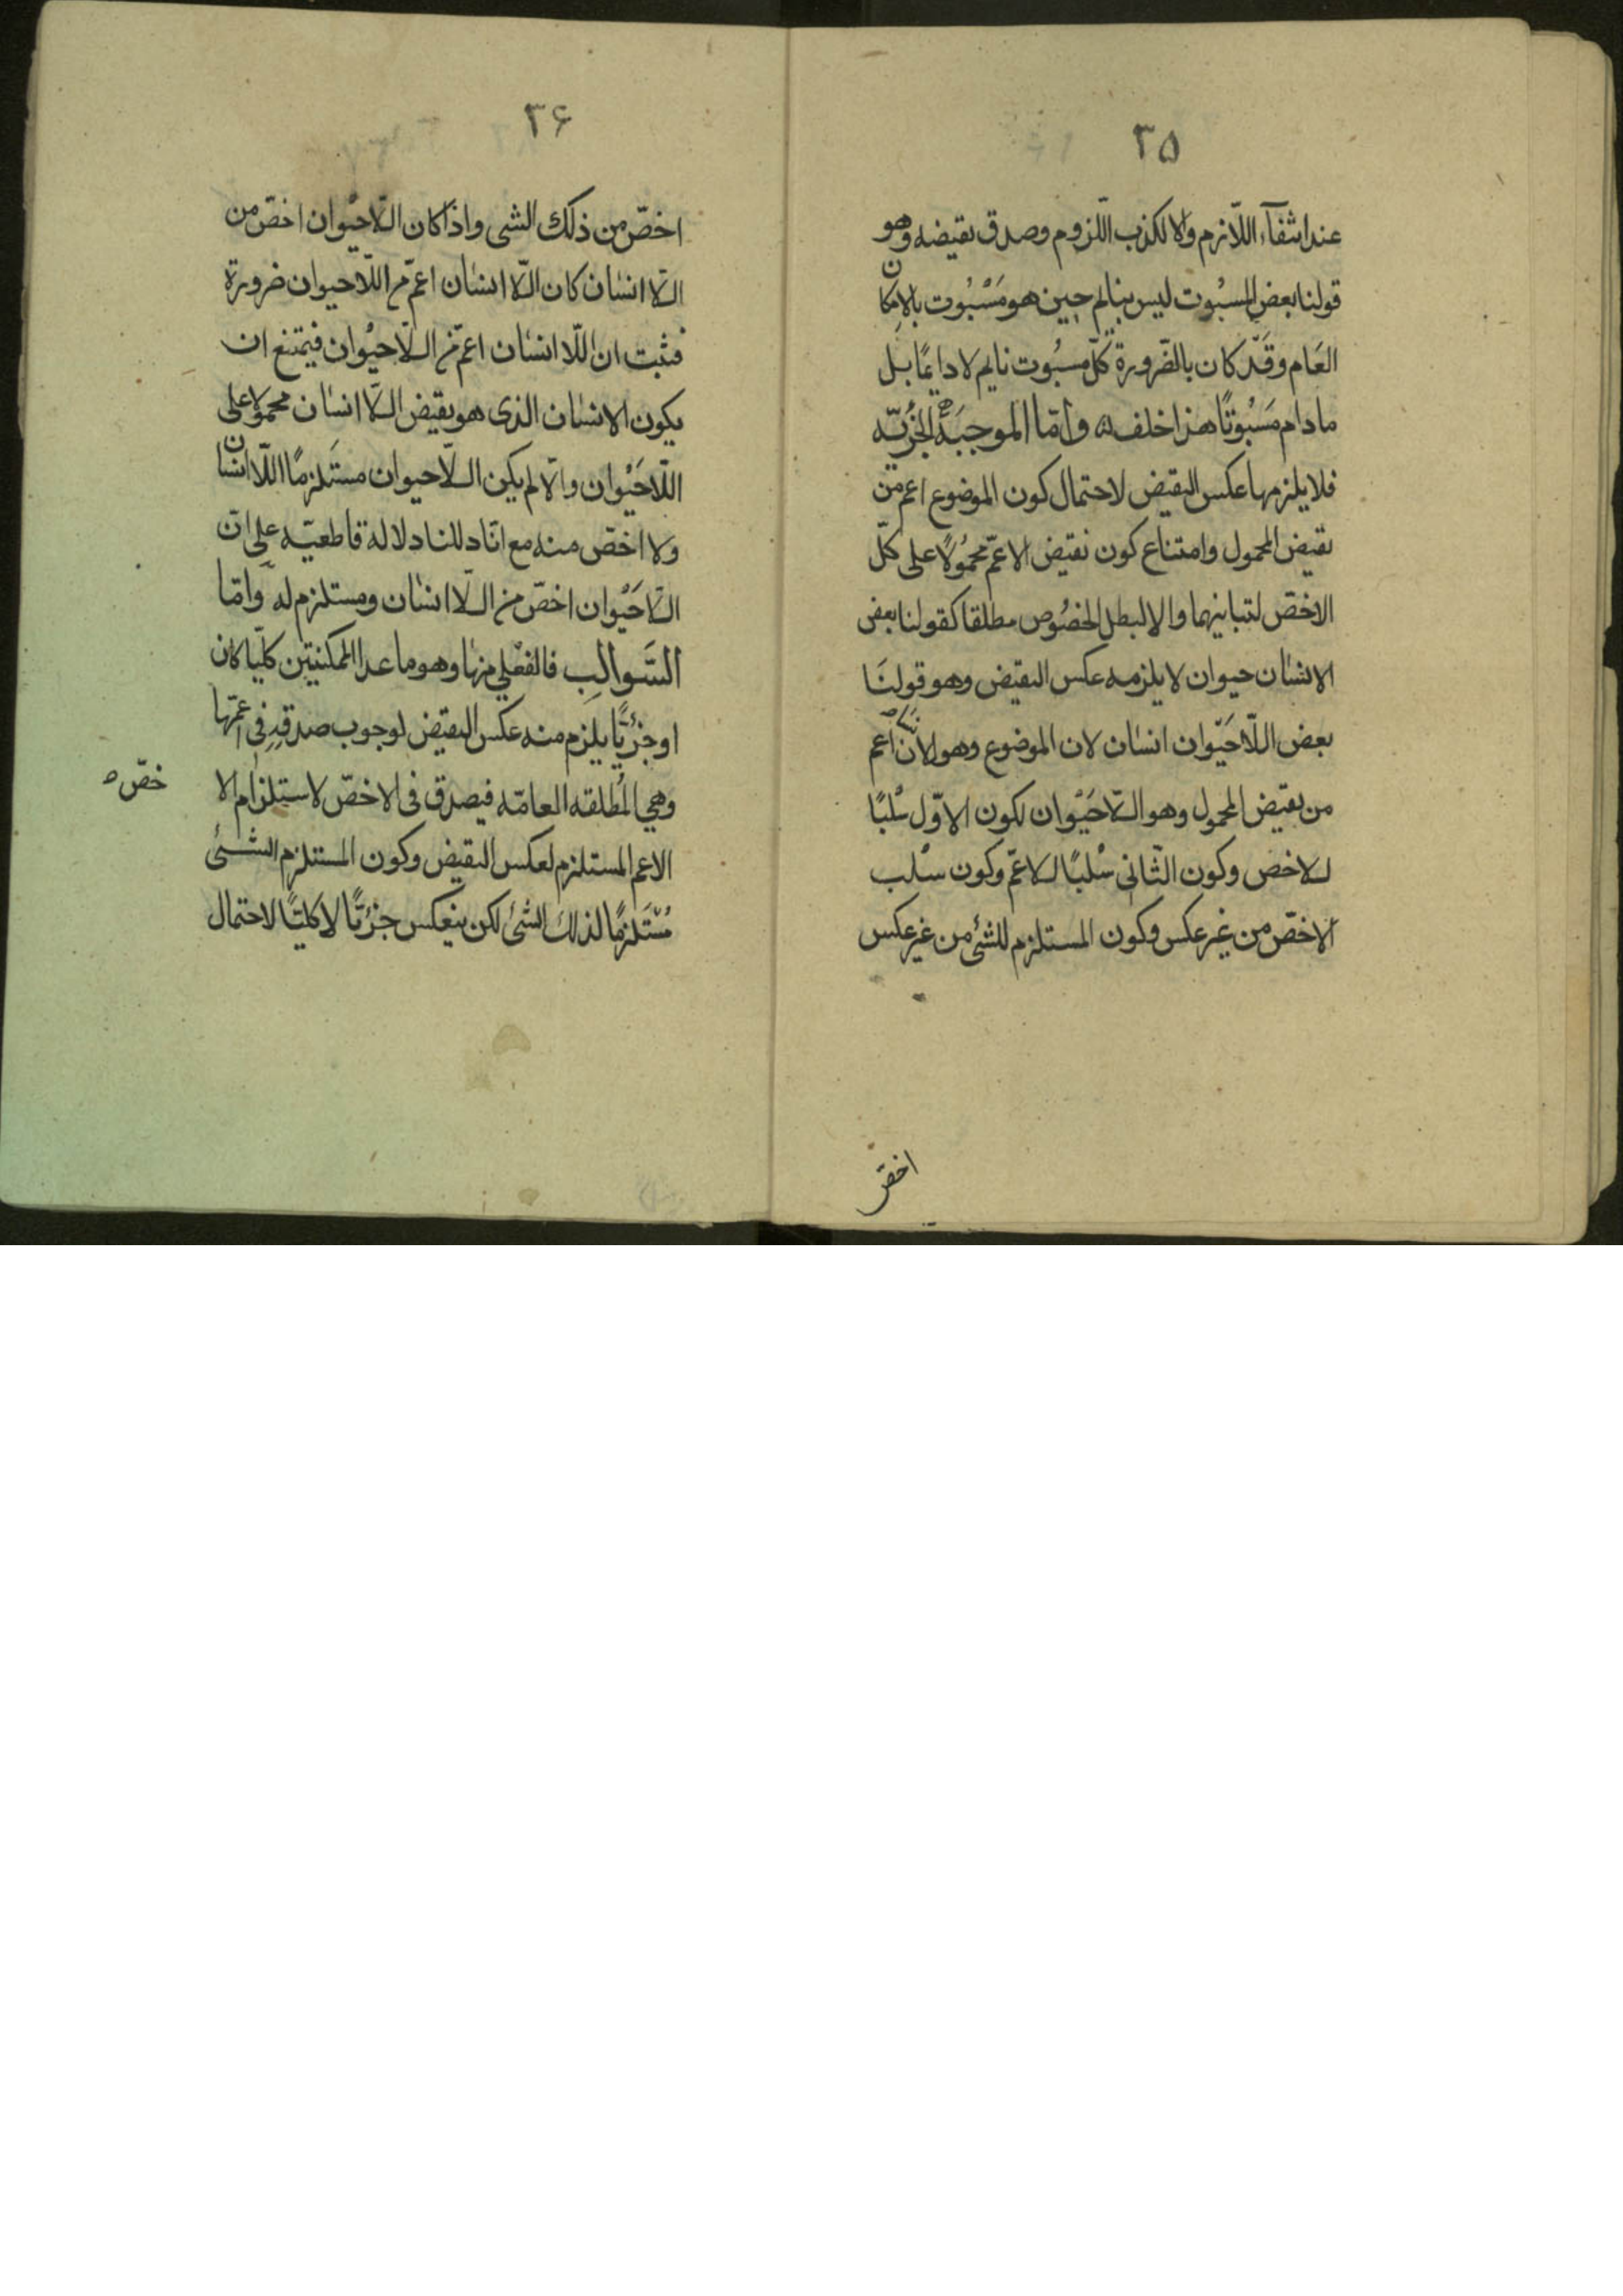 ٣٥
عند انتفآء اللّازم والا لكذب اللّزوم وصدق نقيضه وهو
قولنا بعض المسبُوت ليس بنايم حين هو مَسْبُوت بالامكان
العَام وقَدّ كان بالضّرورة كلّ مسبُوت نايم لا دايمًا بل
ما دام مَسْبُوتًا هذا خلف وامّا الموجبَة الجُزئيّه
فلا يلزمها عكس النقيض لاحتمال كون الموضوع اعم من
نقيض المحمول وامتناع كون نقيض الاعمّ محمُولًا على كلّ
الاخصّ لتباينهما والا لبطل الخصُوص مطلقا كقولنا بعض
الانسٰان حيوان لا يلزمه عكس النقيض وهو قولنَا
بعض اللّاحَيْوان انسٰان لان الموضوع وهو الانسان اعم
من نقيض المحمول وهو اللّاحَيْوان لكون الاوّل سْلبًا
للاخص وكون الثّانى سْلبًا للاعمّ وكون سْلب
الاخصّ من غير عكس وكون المستلزم للشئ من غير عكس
اخصّ
٣۶
اخصّ من ذلك الشى واذا كان اللّاحيْوان اخصّ من
اللّا انسٰان كان اللّا انسٰان اعمّ من اللّاحيوان ضرورة
فثبت ان اللّا انسٰان اعمّ من اللّاحيْوان فيمتنع ان
يكون الانسٰان الذى هو نقيض اللّا انسٰان محمولا على
اللّاحَيْوان والّا لم يكن اللّاحيوان مستَلزمًا اللّا انسان
ولا اخصّ منه مع انّا دللنا دلاله قاطعيّه على انّ
اللّاحَيْوان اخصّ من اللّا انسٰان ومستلزم له وامّا
السَّوالبِ فالفعْلي منها وهو ما عدا الممكنيتين كلّيا كان
او جزئيًّا يلزم منه عكس النقيض لوجوب صدقهِ فى اعمّها
وهي المُطلقه العامّه فيصدق فى الاخصّ لاستلزام الا
خصّ ٥
الاعم المستلزم لعكس النقيض وكون المستلزم الشئ
مُسْتَلزمًا لذلك الشئ لكن ينعكس جزئيًّا لا كليًّا لاحتمال